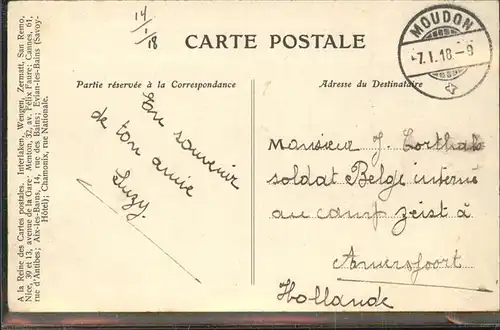 A la Reine des Cartes postales. Interlaken, Wengen, Zermatt, San Remo,
Nice, 39 et 13, avenue de la Gare; Menton, 32, av. Félix Faure; Cannes, 61,
rue d'Antibes; Aix-les-Bains, 14, rue des Bains; Evian-les-Bains (Savoy-
Hôtel); Chamonix, rue Nationale.
14
1
18
CARTE POSTALE
MOUDON
-7.1.18.-9
Partie réservée à la Correspondance
Adresse du Destinataire
En souvenir
de ton amie
Suzy.
Monsieur J.
soldat Belge interné
au camp Zeist à
Amersfoort
Hollande